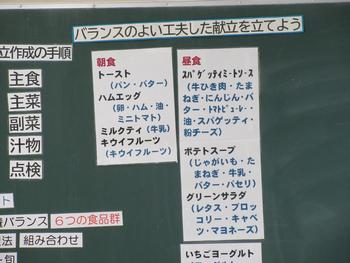 バランスのよい工夫した献立を立てよう
立作成の手順
主食
主菜
副菜
汁物
点検
朝食
トースト
(パン・バター)
ハムエッグ
(卵・ハム・油・
ミニトマト)
ミルクティ(牛乳)
キウイフルーツ
(キウイフルーツ)
昼食
スパゲッティミートソース
(牛ひき肉・たま
ねぎ・にんじん・バ
ター・トマトピューレー・
油・スパゲッティ・
粉チーズ)
ポテトスープ
(じゃがいも・た
まねぎ・牛乳・
バター・パセリ)
グリーンサラダ
(レタス・ブロッ
コリー・キャベ
ツ・マヨネーズ)
いちごヨーグルト
ント
バランス
6つの食品群
法
組み合わせ
・旬